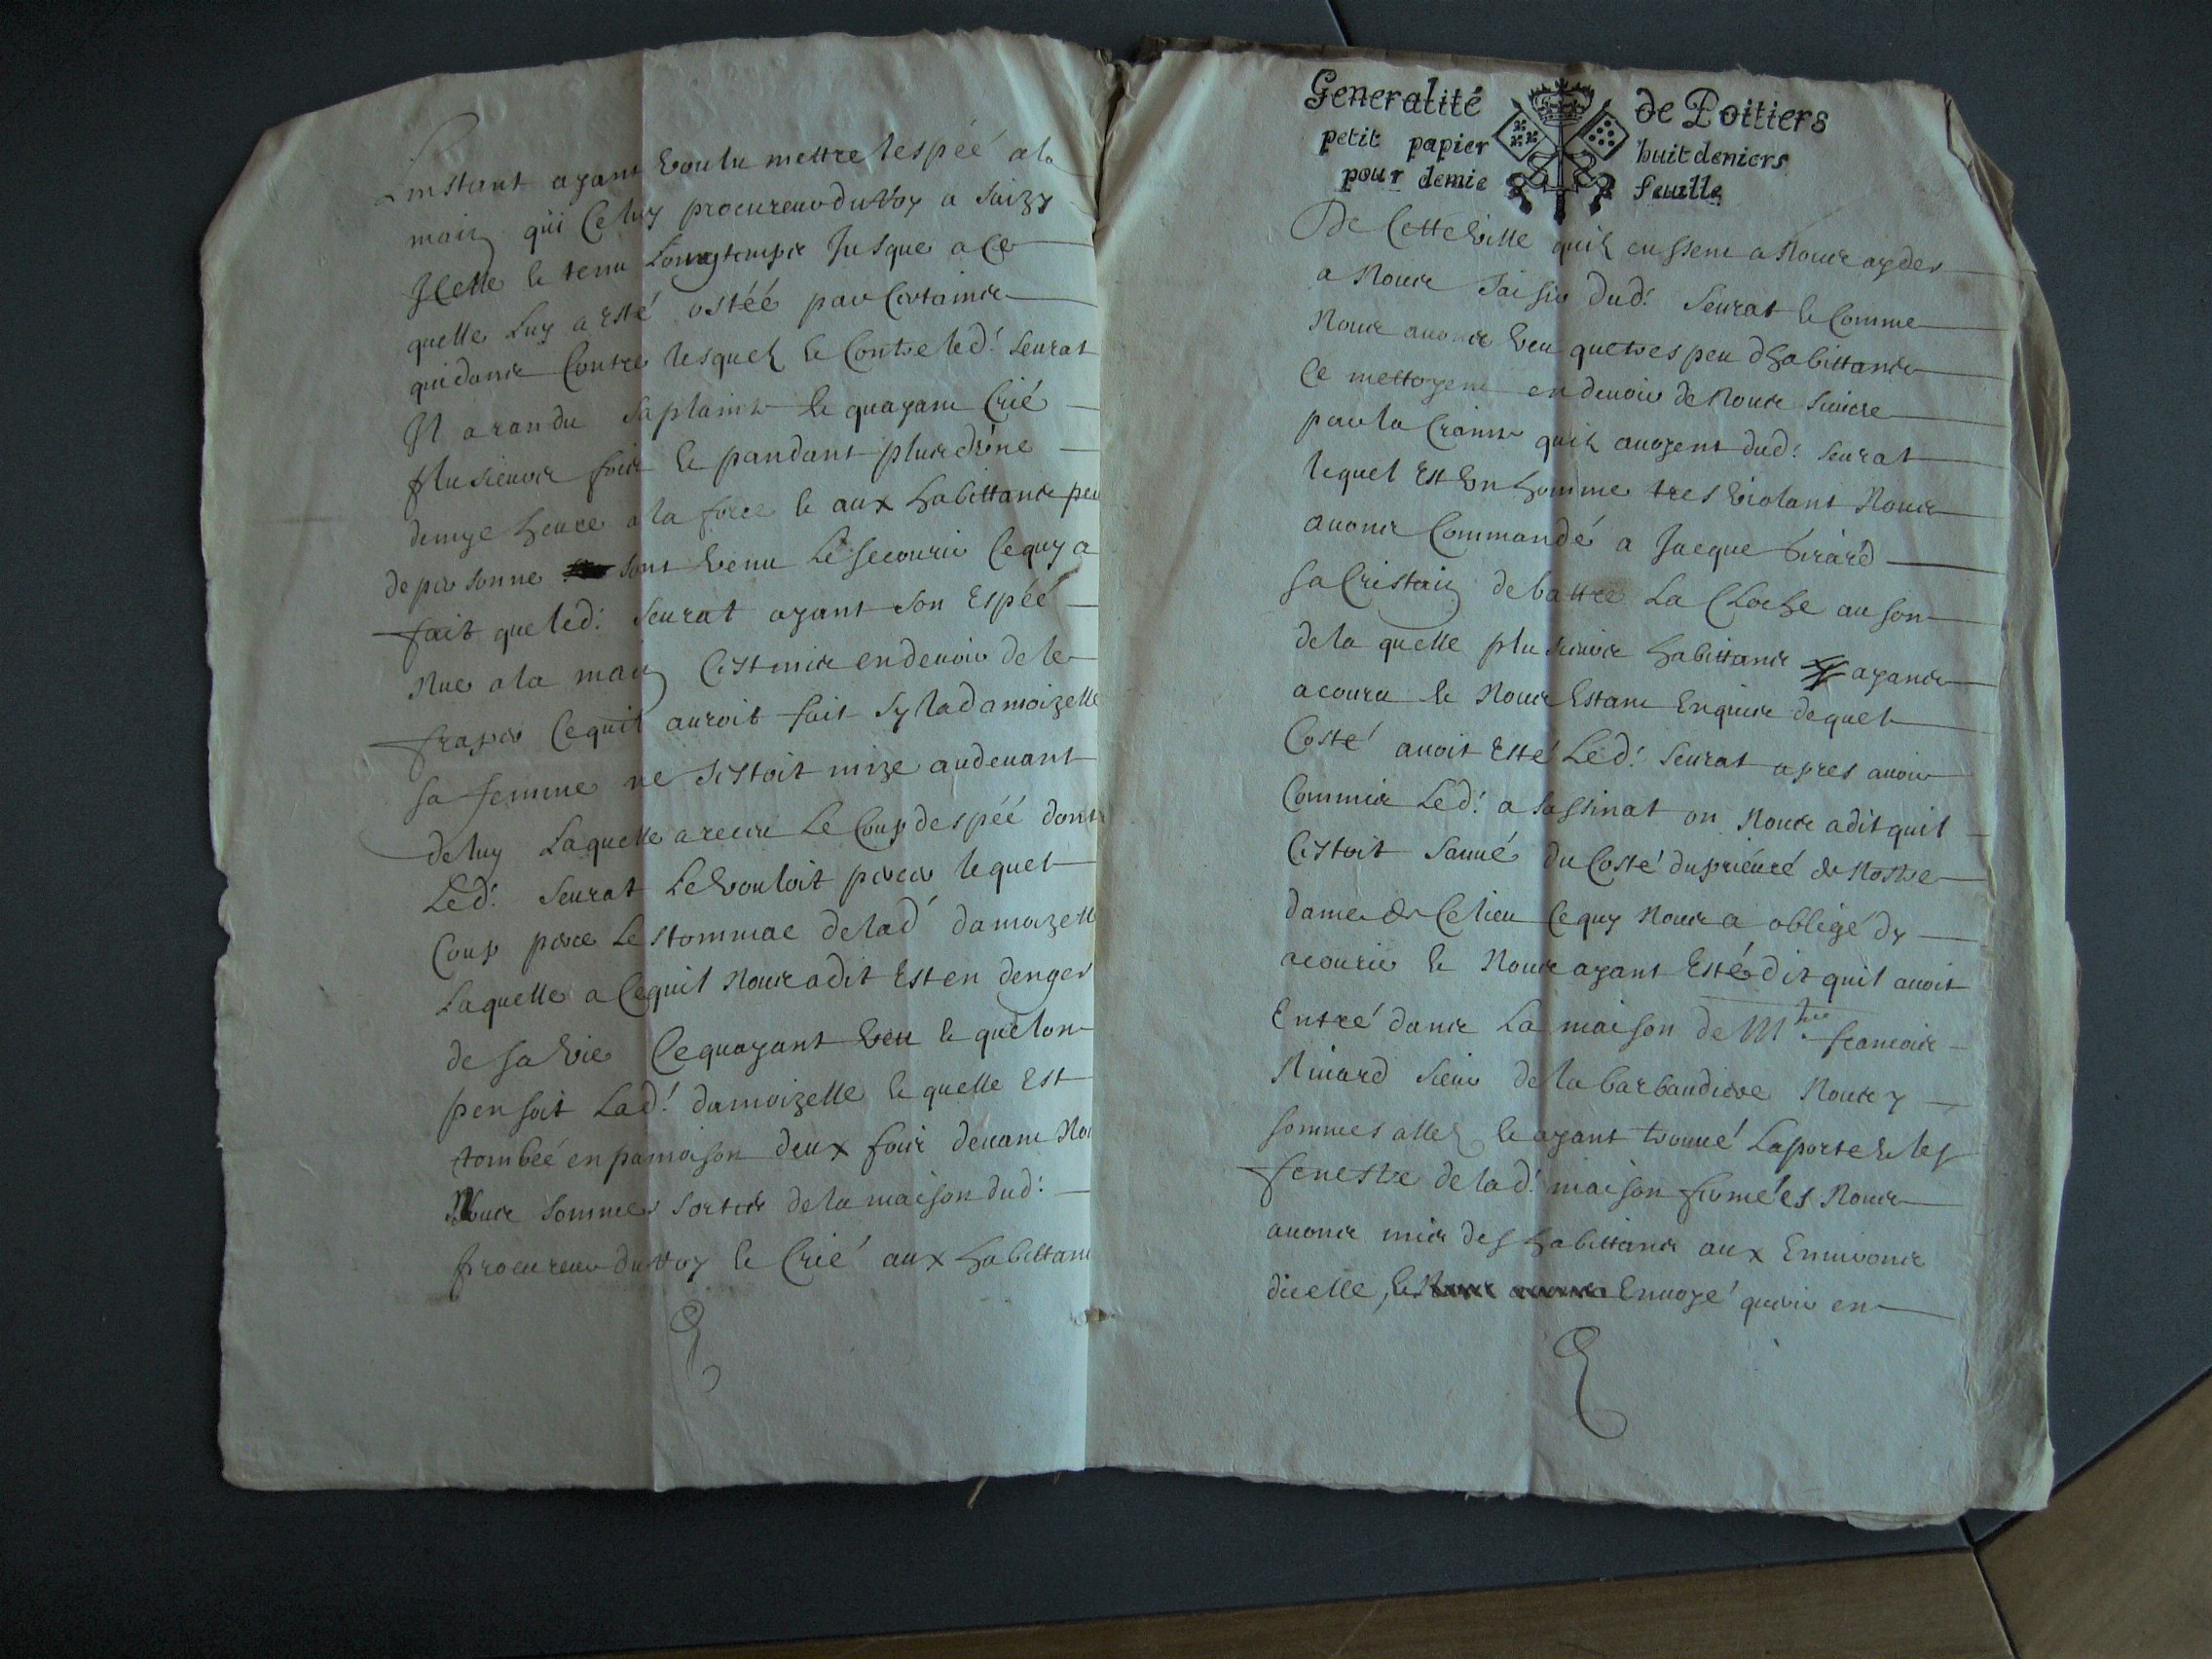 Linstant ayant voulu mettre lespéé ala
main qui Celuy procureur du Roy a saizy
Jcelle & tenu Longtemps Jusque a Ce
quelle Luy a esté ostéé par Certains
quidans Contre lesquels & Contre led: seurat
Il a randu sa plainte & quayant Crié
plusieurs fois & pandant plus dune
demye heure a la force & aux habittans peu
de personne sont venu Le secourir Ce quy a
fait que led: seurat ayant son Espéé
Nue ala main Cest mis en devoir de le
fraper Ce quil auroit fait sy la damoizelle
sa femme ne sestoit mize audevant
de luy Laquelle a receu Le Coup despéé dont
Led: seurat Le vouloit percer lequel
Coup perce Lestommac de lad: damoizelle
Laquelle a Ce quil Nous a dit Est en denger
de sa vie Ce quayant veu & que lon
pensoit Lad: damoizelle & quelle Est
tombéé en pamoison deux fois devant Nou
Nous sommes sortis de la maison dud:
procureur du Roy & Crié aux habittans
Generalité de Poitiers
petit papier huit deniers
pour demie feuille
De Cette ville quils eussent a Nous ayder
a Nous saisir dud: seurat & Comme
Nous avons veu que tres peu dhabittans
Ce mettoyent en devoir de Nous suivre
par la Crainte quils avoyent dud: seurat
lequel Est vn homme tres violant Nous
avons Commandé a Jacque Girard
saCristain de battre La Cloche au son
de la quelle plusieurs habittans ayans
acouru & Nous Estant Enquis de quel
Costé avoit Esté Led: seurat apres avoir
Commis Led: asassinat on Nous a dit quil
Cestoit sauvé du Costé du prieuré de Nostre
dame de Ce lieu Ce quy Nous a obligé dy
acourir & Nous ayant Esté dit quil avoit
Entré dans La maison de Mtre francois
Nivard sieur de la barbaudiere Nous y
sommes allés & ayant trouvé La porte & les
fenestre de lad: maison fermées Nous
avons mis des habittans aux Environs
dicelle, & Envoyé querir en